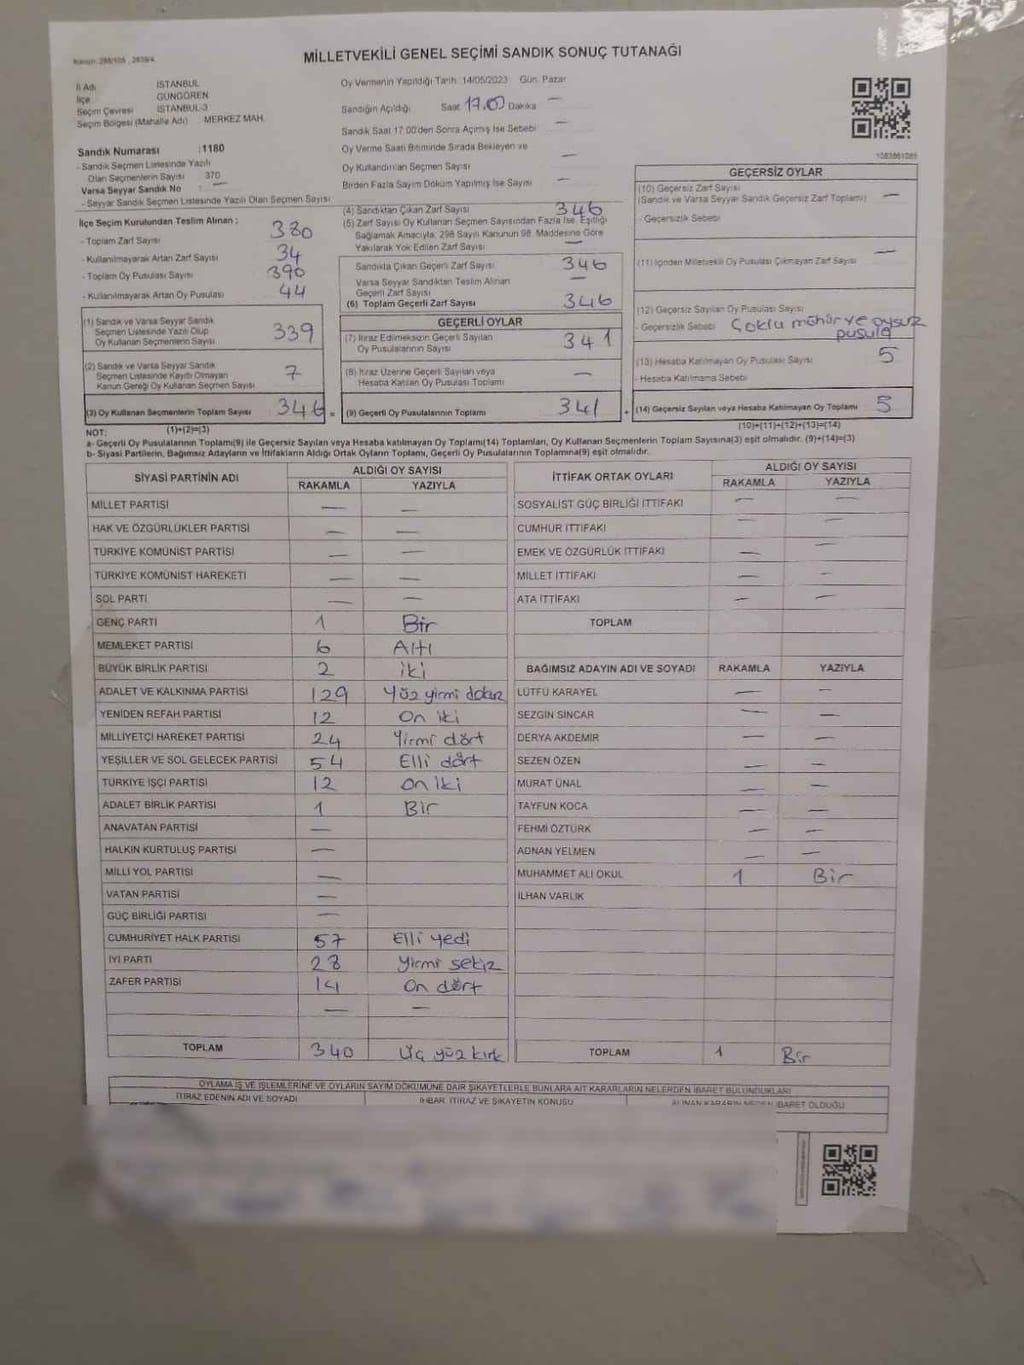 MİLLETVEKİLİ GENEL SEÇİMİ SANDIK SONUÇ TUTANAĞI
İl Adı İSTANBUL
İlçe GÜNGÖREN
Seçim Çevresi İSTANBUL-3
Seçim Bölgesi (Mahalle Adı) : MERKEZ MAH.
Sandık Numarası :1180
- Sandık Seçmen Listesinde Yazılı
Olan Seçmenlerin Sayısı 370
Varsa Seyyar Sandık No : —
- Seyyar Sandık Seçmen Listesinde Yazılı Olan Seçmen Sayısı
Oy Vermenin Yapıldığı Tarih :14/05/2023 Gün: Pazar
Sandığın Açıldığı Saat 17.00 Dakika —
Sandık Saat 17.00'den Sonra Açımış İse Sebebi —
Oy Verme Saati Bitiminde Sırada Bekleyen ve
Oy Kullandırılan Seçmen Sayısı —
Birden Fazla Sayım Döküm Yapılmış İse Sayısı —
İlçe Seçim Kurulundan Teslim Alınan :
- Toplam Zarf Sayısı 380
- Kullanılmayarak Artan Zarf Sayısı 34
- Toplam Oy Pusulası Sayısı 390
- Kullanılmayarak Artan Oy Pusulası 44
(1) Sandık ve Varsa Seyyar Sandık
Seçmen Listesinde Yazılı Olup
Oy Kullanan Seçmenlerin Sayısı 339
(2) Sandık ve Varsa Seyyar Sandık
Seçmen Listesinde Kayıtlı Olmayan
Kanun Gereği Oy Kullanan Seçmen Sayısı 7
(3) Oy Kullanan Seçmenlerin Toplam Sayısı 346 =
(1)+(2)=(3)
(4) Sandıktan Çıkan Zarf Sayısı 346
(5) Zarf Sayısı Oy Kullanan Seçmen Sayısından Fazla İse, Eşitliği
Sağlamak Amacıyla; 298 Sayılı Kanunun 98. Maddesine Göre
Yakılarak Yok Edilen Zarf Sayısı —
Sandıkta Çıkan Geçerli Zarf Sayısı 346
Varsa Seyyar Sandıktan Teslim Alınan
Geçerli Zarf Sayısı —
(6) Toplam Geçerli Zarf Sayısı 346
GEÇERLİ OYLAR
(7) İtiraz Edilmeksizin Geçerli Sayılan
Oy Pusulalarının Sayısı 341
(8) İtiraz Üzerine Geçerli Sayılan veya
Hesaba Katılan Oy Pusulası Toplamı —
(9) Geçerli Oy Pusulalarının Toplamı 341 +
1083861085
GEÇERSİZ OYLAR
(10) Geçersiz Zarf Sayısı
(Sandık ve Varsa Seyyar Sandık Geçersiz Zarf Toplamı) —
- Geçersizlik Sebebi
(11) İçinden Milletvekili Oy Pusulası Çıkmayan Zarf Sayısı —
(12) Geçersiz Sayılan Oy Pusulası Sayısı
- Geçersizlik Sebebi Çoklu mühür ve oysuz
pusula
(13) Hesaba Katılmayan Oy Pusulası Sayısı 5
- Hesaba Katılmama Sebebi
(14) Geçersiz Sayılan veya Hesaba Katılmayan Oy Toplamı 5
(10)+(11)+(12)+(13)=(14)
NOT:
a- Geçerli Oy Pusulalarının Toplamı(9) ile Geçersiz Sayılan veya Hesaba katılmayan Oy Toplamı(14) Toplamları, Oy Kullanan Seçmenlerin Toplam Sayısına(3) eşit olmalıdır. (9)+(14)=(3)
b- Siyasi Partilerin, Bağımsız Adayların ve İttifakların Aldığı Ortak Oyların Toplamı, Geçerli Oy Pusulalarının Toplamına(9) eşit olmalıdır.
SİYASİ PARTİNİN ADI ALDIĞI OY SAYISI
RAKAMLA YAZIYLA
MİLLET PARTİSİ — —
HAK VE ÖZGÜRLÜKLER PARTİSİ — —
TÜRKİYE KOMÜNİST PARTİSİ — —
TÜRKİYE KOMÜNİST HAREKETİ — —
SOL PARTİ — —
GENÇ PARTİ 1 Bir
MEMLEKET PARTİSİ 6 Altı
BÜYÜK BİRLİK PARTİSİ 2 iki
ADALET VE KALKINMA PARTİSİ 129 Yüz yirmi dokuz
YENİDEN REFAH PARTİSİ 12 On iki
MİLLİYETÇİ HAREKET PARTİSİ 24 Yirmi dört
YEŞİLLER VE SOL GELECEK PARTİSİ 54 Elli dört
TÜRKİYE İŞÇİ PARTİSİ 12 on iki
ADALET BİRLİK PARTİSİ 1 Bir
ANAVATAN PARTİSİ —
HALKIN KURTULUŞ PARTİSİ —
MİLLİ YOL PARTİSİ —
VATAN PARTİSİ —
GÜÇ BİRLİĞİ PARTİSİ —
CUMHURİYET HALK PARTİSİ 57 Elli yedi
İYİ PARTİ 28 yirmi sekiz
ZAFER PARTİSİ 14 On dört
— —
TOPLAM 340 Üç yüz kırk
İTTİFAK ORTAK OYLARI ALDIĞI OY SAYISI
RAKAMLA YAZIYLA
SOSYALİST GÜÇ BİRLİĞİ İTTİFAKI — —
CUMHUR İTTİFAKI — —
EMEK VE ÖZGÜRLÜK İTTİFAKI — —
MİLLET İTTİFAKI — —
ATA İTTİFAKI — —
TOPLAM
BAĞIMSIZ ADAYIN ADI VE SOYADI RAKAMLA YAZIYLA
LÜTFÜ KARAYEL — —
SEZGİN SİNCAR — —
DERYA AKDEMİR — —
SEZEN ÖZEN — —
MURAT ÜNAL — —
TAYFUN KOCA — —
FEHMİ ÖZTÜRK — —
ADNAN YELMEN — —
MUHAMMET ALİ OKUL 1 Bir
İLHAN VARLIK
TOPLAM 1 Bir
OYLAMA İŞ VE İŞLEMLERİNE VE OYLARIN SAYIM DÖKÜMÜNE DAİR ŞİKAYETLERLE BUNLARA AİT KARARLARIN NELERDEN İBARET BULUNDUKLARI
İTİRAZ EDENİN ADI VE SOYADI İHBAR, İTİRAZ VE ŞİKAYETİN KONUSU ALINAN KARARIN NEDEN İBARET OLDUĞU